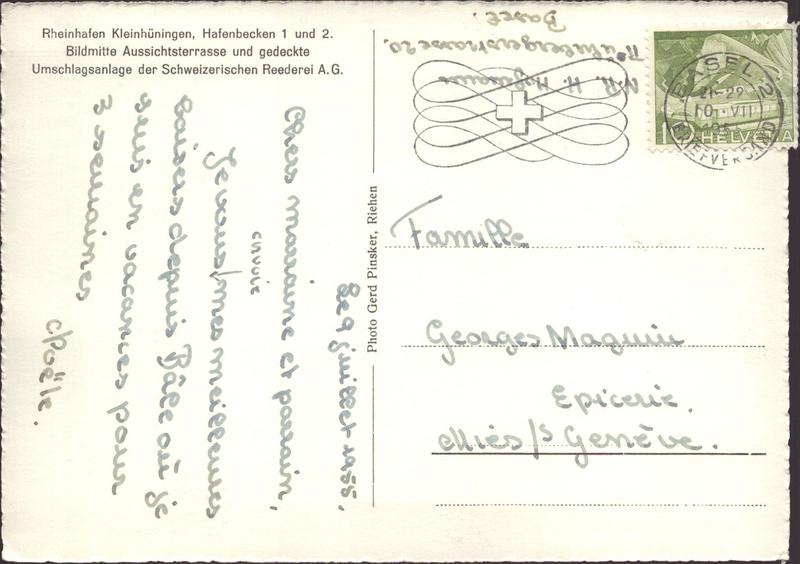 Rheinhafen Kleinhüningen, Hafenbecken 1 und 2.
Bildmitte Aussichtsterrasse und gedeckte
Umschlagsanlage der Schweizerischen Reederei A.G.
le 9 juillet 1955.
Chers marraine et parrain,
Je vous envoie mes meilleures
baisers depuis Bâle où je
suis en vacances pour
3 semaines
Noëlle.
Photo Gerd Pinsker, Riehen
H.
Basel.
BASEL 2
21-22
10. VII
BRIEFVERSAND
10 HELVETIA
Famille
Georges Magnin
Epicerie.
Miès/s Genève.